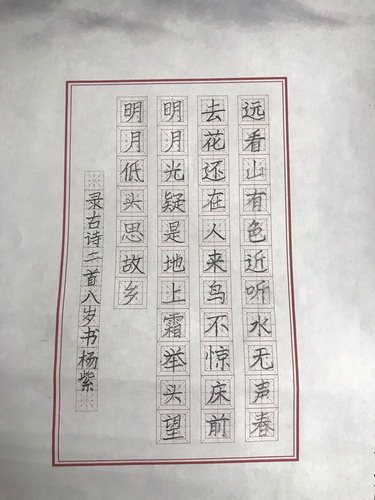 远看山有色近听水无声春
去花还在人来鸟不惊床前
明月光疑是地上霜举头望
明月低头思故乡
录古诗二首八岁书杨紫